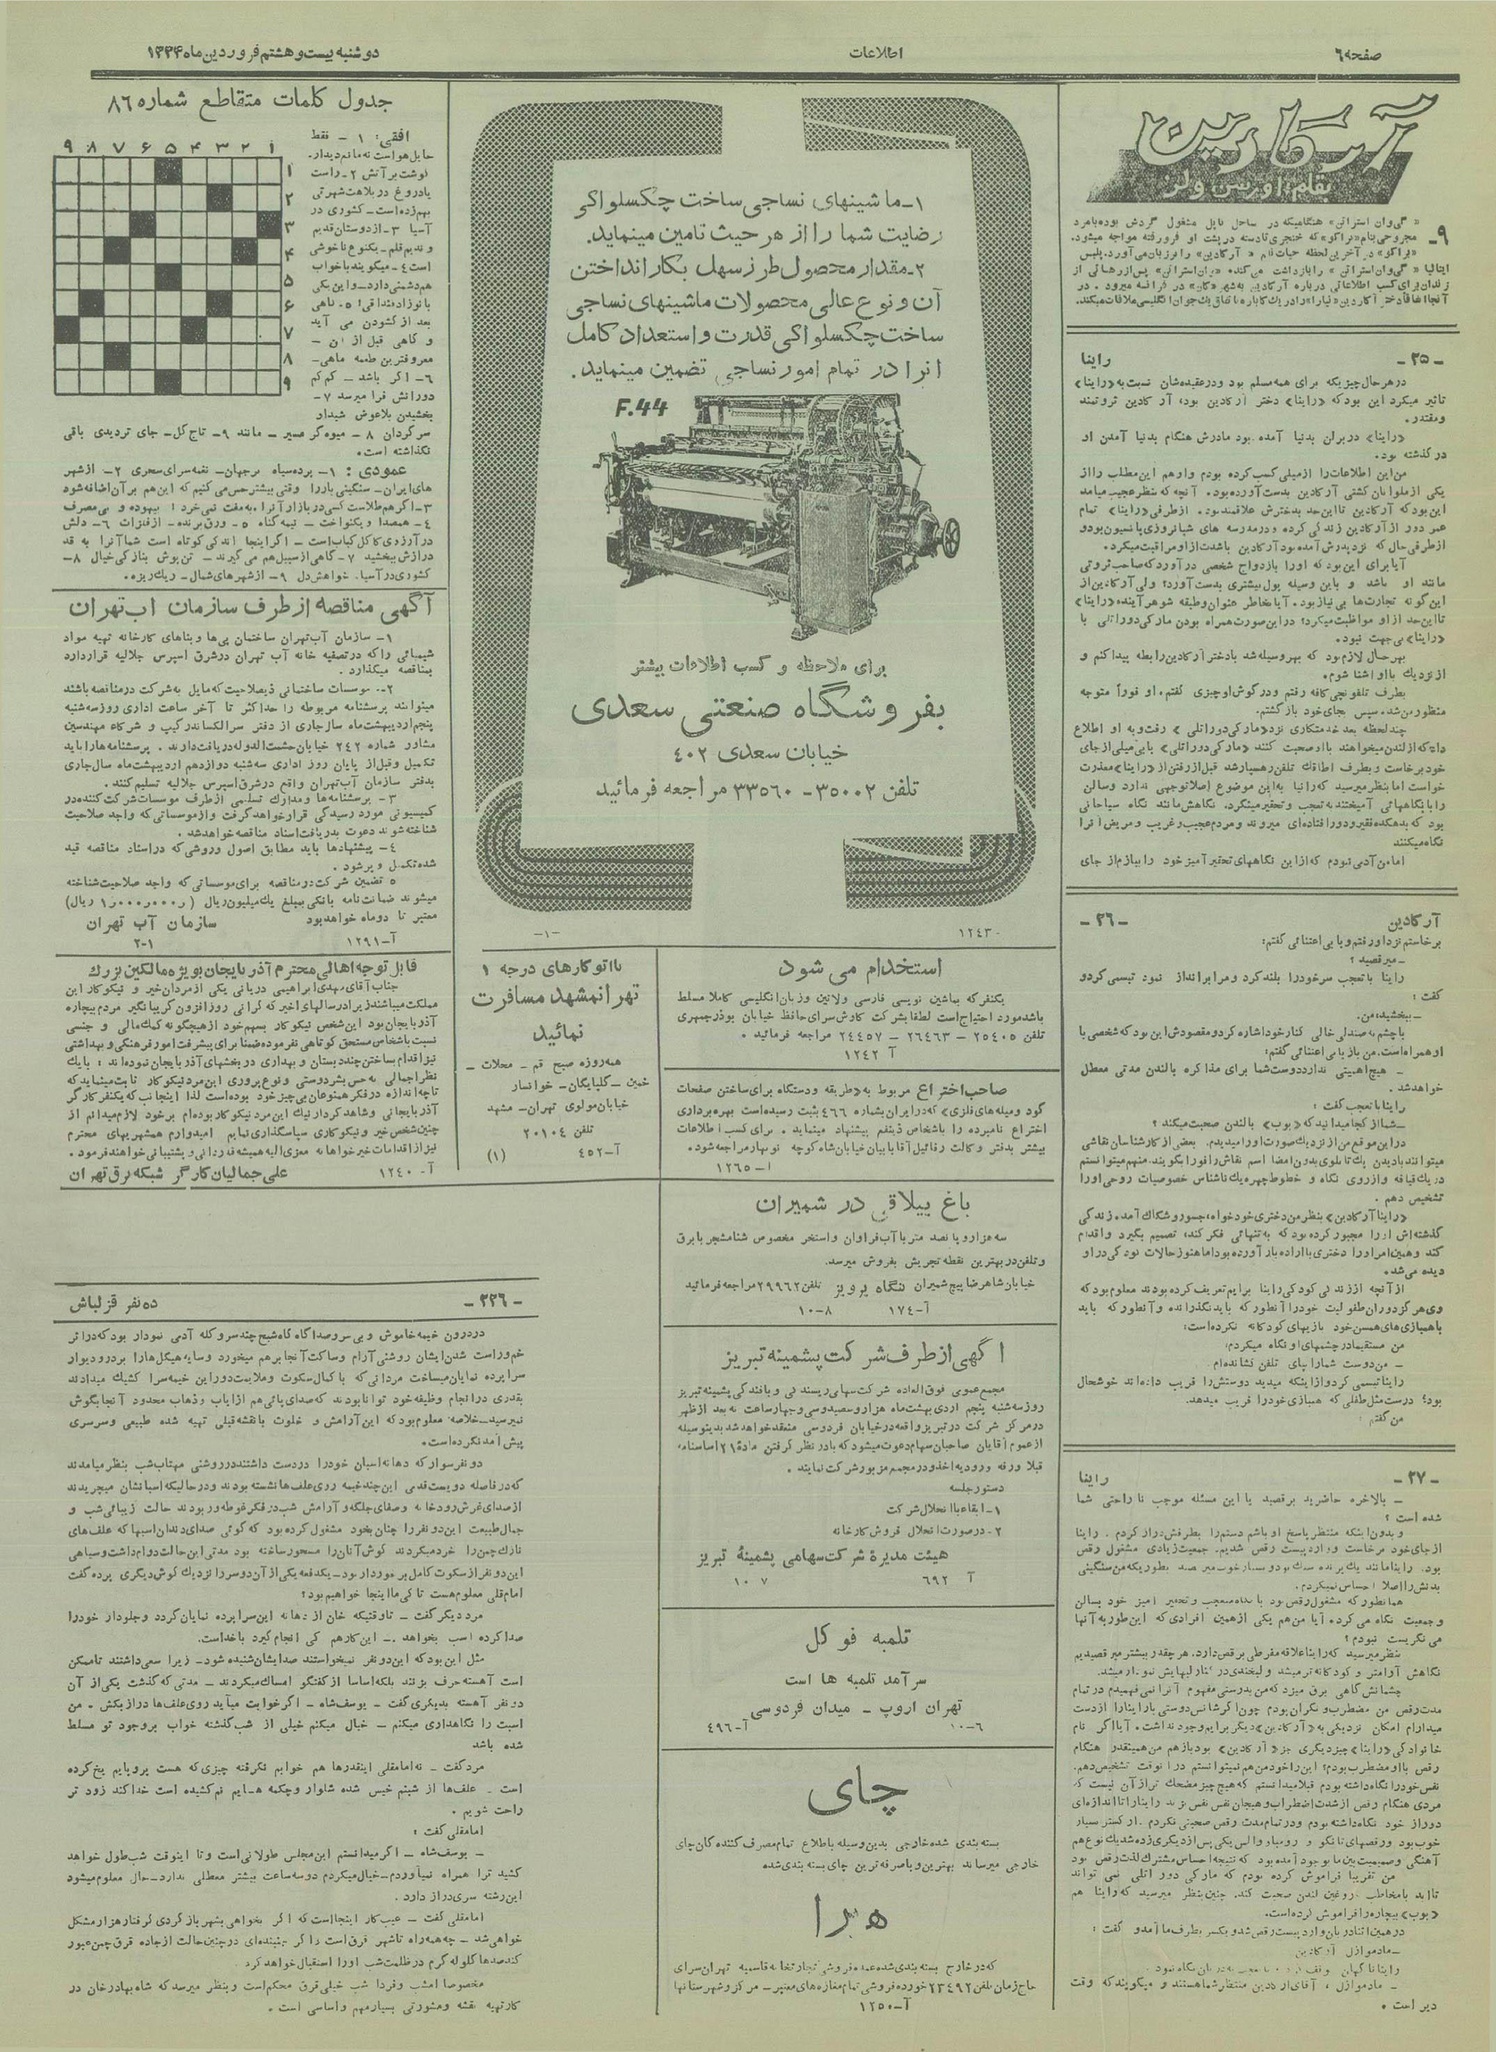 صفحه ۶
اطلاعات
دوشنبه بیست و هشتم فروردین ماه ۱۳۳۴
آرکادین
بقلم: اورسن ولز
۹-
« گی‌وان استراتن » هنگامیکه در ساحل ناپل مشغول گردش بوده بامرد
مجروحی بنام «براکو» که خنجری تا دسته در پشت او فرورفته مواجه میشود.
«براکو» در آخرین لحظه حیات نام « آرکادین » را بر زبان می‌آورد. پلیس
ایتالیا « گی‌وان استراتن » را بازداشت می‌کند. «وان استراتن » پس از رهائی از
زندان برای کسب اطلاعاتی درباره آرکادین به شهر «کان» در فرانسه میرود . در
- ۲۵ -
راینا
در هر حال چیزیکه برای همه مسلم بود و در عقیده‌شان نسبت به «راینا»
تاثیر میکرد این بود که «راینا» دختر آرکادین بود، آرکادین ثروتمند
و مقتدر.
«راینا» در بران بدنیا آمده بود مادرش هنگام بدنیا آمدن او
در گذشته بود.
من این اطلاعات را از میلی کسب کرده بودم و او هم این مطلب را از
یکی از ملوانان کشتی آرکادین بدست آورده بود. آنچه که بنظر عجیب میامد
این بود که آرکادین تا این حد بدخترش علاقمند بود. از طرفی «راینا» تمام
عمر دور از آرکادین زندگی کرده و در مدرسه های شبانروزی پانسیون بود و
از طرفی حال که نزد پدرش آمده بود آرکادین باشدت از او مراقبت میکرد.
آیا برای این بود که او را بازدواج شخصی در آورد که صاحب ثروتی
مانند او باشد و باین وسیله پول بیشتری بدست آورد؟ ولی آرکادین از
این گونه تجارت‌ها بی نیاز بود. آیا بخاطر عنوان و طبقه شوهر آینده «راینا»
تا این حد از او مواظبت میکرد؟ در این صورت همراه بودن مارکی دوراتلی با
«راینا» بی جهت نبود.
بهر حال لازم بود که بهر وسیله شد با دختر آرکادین رابطه پیدا کنم و
از نزدیک با او آشنا شوم.
بطرف تلفونچی کافه رفتم و در گوش او چیزی گفتم. او فوراً متوجه
منظور من شد. سپس بجای خود بازگشتم.
چند لحظه بعد خدمتکاری نزد «مارکی دوراتلی » رفت و به او اطلاع
داد که از لندن میخواهند با او صحبت کنند «مارکی دوراتلی» با بی‌میلی از جای
خود برخاست و بطرف اطاقک تلفن رهسپار شد قبل از رفتن از «راینا» معذرت
خواست اما بنظر میرسید که راینا به این موضوع اصلا توجهی ندارد و سالن
را با نگاههائی آمیخته به تعجب و تحقیر مینگرد. نگاهش مانند نگاه سیاحانی
بود که به دهکده فقیر و دور افتاده‌ای میروند و مردم عجیب و غریب و مریض آنرا
نگاه میکنند
اما من آدمی نبودم که از این نگاههای تحقیر آمیز خود را ببازم از جای
- ۲۶ -
آرکادین
برخاستم نزد او رفتم و با بی اعتنائی گفتم:
ـ میرقصید ؟
راینا با تعجب سر خود را بلند کرد و مرا برانداز نمود تبسمی کرد و
گفت :
ـ ببخشید، من.
با چشم به صندلی خالی کنار خود اشاره کرد و مقصودش این بود که شخصی با
او همراه است. من باز با بی اعتنائی گفتم:
ـ هیچ اهمیتی ندارد دوست شما برای مذاکره با لندن مدتی معطل
خواهد شد .
راینا با تعجب گفت :
ـ شما از کجا میدانید که «بوب» با لندن صحبت میکند ؟
در این موقع من از نزدیک صورت او را میدیدم. بعضی از کارشناسان نقاشی
میتوانند با دیدن یک تابلوی بدون امضا اسم نقاش را فورا بگویند. منهم میتوانستم
در یک قیافه و از روی نگاه و خطوط چهره یک ناشناس خصوصیات روحی او را
تشخیص دهم .
«راینا آرکادین» بنظر من دختری خودخواه، جسور و شکاک آمد. زندگی
گذشته‌اش او را مجبور کرده بود که به تنهائی فکر کند، تصمیم بگیرد و اقدام
کند و همین امر او را دختری با اراده بار آورده بود اما هنوز حالات کودکی در او
دیده می‌شد.
از آنچه از زندگی کودکی راینا برایم تعریف کرده بودند معلوم بود که
وی هرگز دوران طفولیت خود را آنطور که باید نگذرانده و آنطور که باید
با همبازی‌های همسن خود بازیهای کودکانه نکرده است:
من مستقیما در چشمهای او نگاه میکردم.
ـ من دوست شما را پای تلفن کشانده‌ام .
راینا تبسمی کرد و از اینکه میدید دوستش را فریب داده‌اند خوشحال
بود؛ درست مثل طفلی که همبازی خود را فریب میدهد.
من گفتم :
- ۲۷ -
راینا
ـ بالاخره حاضرید برقصید یا این مسئله موجب ناراحتی شما
شده است ؟
و بدون اینکه منتظر پاسخ او باشم دستم را بطرفش دراز کردم . راینا
از جای خود برخاست و وارد پیست رقص شدیم. جمعیت زیادی مشغول رقص
بدنش را اصلا احساس نمیکردم.
و جمعیت نگاه می کرده آیا من هم یکی از همین افرادی که این طور به آنها
می نگریست نبودم؟
بنظر میرسید که راینا علاقه مفرطی برقص دارد. هر چقدر بیشتر میرقصیدیم
نگاهش آرامتر و کودکانه‌تر میشد و لبخندی در کنار لبهایش نمودار میشد.
چشمانش گاهی برق میزد که من بدرستی مفهوم آنرا نمی‌فهمیدم در تمام
مدت رقص من مضطرب و نگران بودم چون اگر شانس دوستی با راینا را از دست
میدادم امکان نزدیکی به «آرکادین» دیگر برایم وجود نداشت. آیا اگر نام
خانوادگی «راینا» چیز دیگری جز «آرکادین» بود باز هم من همینقدر هنگام
رقص با او مضطرب بودم؟ این را خود من هم نمیتوانستم در آنوقت تشخیص دهم.
نفس خود را نگاه داشته بودم قبلا میدانستم که هیچ چیز مضحک تر از آن نیست که
مردی هنگام رقص از شدت اضطراب و هیجان نفس نفس بزند راینا را تا اندازه‌ای
دور از خود نگاه داشته بودم و در تمام مدت رقص صحبتی نکردم . ارکستر بسیار
خوب بود و رقصهای تانگو و رومبا و والس یکی پس از دیگری زده شد یک نوع هم
آهنگی و صمیمیت بین ما بوجود آمده بود که نتیجه احساس مشترک لذت رقص بود
من تقریبا فراموش کرده بودم که مارکی دوراتلی نمی تواند
تا ابد با مخاطب دروغین لندن صحبت کند. چنین بنظر میرسید که راینا هم
«بوب» بیچاره را فراموش کرده است.
در همین اثنا دربان وارد پیست رقص شد و یکسر بطرف ما آمد و گفت :
ـ مادموازل آرکادین
ـ مادموازل ، آقای آرکادین منتظر شما هستند و میگویند که وقت
دیر است .
۱ـ ماشینهای نساجی ساخت چکسلواکی
رضایت شما را از هر حیث تامین مینماید.
۲ـ مقدار محصول طرز سهل بکار انداختن
آن و نوع عالی محصولات ماشینهای نساجی
ساخت چکسلواکی قدرت و استعداد کامل
آنرا در تمام امور نساجی تضمین مینماید.
F.44
برای ملاحظه و کسب اطلاعات بیشتر
بفروشگاه صنعتی سعدی
خیابان سعدی ۴۰۲
تلفن ۳۵۰۰۲ - ۳۳۵۶۰ مراجعه فرمائید
۱۲۴۳۰
-۱-
استخدام می شود
یکنفر که بماشین نویسی فارسی و لاتین و زبان انگلیسی کاملا مسلط
باشد مورد احتیاج است لطفا بشرکت کاوش سرای حافظ خیابان بوذرجمهری
تلفن ۲۵۴۰۵ - ۲۶۴۶۳ - ۲۴۴۵۷ مراجعه فرمائید .
آ ۱۲۴۲
صاحب اختراع مربوط به «طریقه و دستگاه برای ساختن صفحات
گود و میله های فلزی» که در ایران بشماره ۴۶۶ ثبت رسیده است بهره برداری
اختراع نامبرده را باشخاص ذینفع پیشنهاد مینماید . برای کسب اطلاعات
بیشتر بدفتر وکالت رفائیل آقابابیان خیابان شاه کوچه نوبهار مراجعه شود.
آ-۱۲۶۵
باغ ییلاقی در شمیران
سه هزار و پانصد متر با آب فراوان و استخر مخصوص شنا مشجر با برق
و تلفن در بهترین نقطه تجریش بفروش میرسد.
خیابان شاهرضا پیچ شمیران بنگاه پرویز تلفن ۲۹۹۶۲ مراجعه فرمائید
آ-۱۷۴
۸-۱۰
آگهی از طرف شرکت پشمینه تبریز
مجمع عمومی فوق‌العاده شرکت سهامی ریسندگی و بافندگی پشمینه تبریز
روز سه شنبه پنجم اردی بهشت ماه هزار و سیصد و سی و چهار ساعت نه بعد از ظهر
در مرکز شرکت در تبریز واقعه در خیابان فردوسی منعقد خواهد شد بدینوسیله
از عموم آقایان صاحبان سهام دعوت میشود که با در نظر گرفتن مادهٔ ۲۱ اساسنامه
قبلا ورقه ورودیه اخذ و در مجمع مزبور شرکت نمایند .
دستور جلسه
۱- ابقاء یا انحلال شرکت
۲- در صورت انحلال فروش کارخانه
هیئت مدیرهٔ شرکت سهامی پشمینهٔ تبریز
آ ۶۹۲
۷ ۱۰
تلمبه فوکل
سرآمد تلمبه ها است
تهران اروپ - میدان فردوسی
۶-۱۰
آ-۴۹۶
چای
بسته بندی شده خارجی بدین وسیله باطلاع تمام مصرف کننده گان چای
خارجی میرساند بهترین و باصرفه ترین چای بسته بندی شده
هما
که در خارج بسته بندی شده عمده فروشی تجارتخانه قاسمیه تهران سرای
حاج زمان تلفن ۲۳۴۹۲ خورده فروشی تمام مغازه های معتبر - مرکز و شهرستانها
آ-۱۲۵۰
با اتوکارهای درجه ۱
تهران مشهد مسافرت
نمائید
همه روزه صبح قم - محلات -
خمین - گلپایگان - خوانسار
خیابان مولوی تهران - مشهد
تلفن ۲۰۱۰۴
آ-۴۵۲
(۱)
جدول کلمات متقاطع شماره ۸۶
۱ ۲ ۳ ۴ ۵ ۶ ۷ ۸ ۹
۱
۲
۳
۴
۵
۶
۷
۸
۹
افقی: ۱ - نقطه
حایل هواست نه مانع دیدار.
گوشت بر آتش ۲- راست
یا دروغ در بلاهت شهرتی
بهم زده است - کشوری در
آسیا ۳- از دوستان قدیم
و ندیم قلم - یکنوع ناخوشی
است ۴- میگویند با خواب
هم دشمنی دارد - و این یکی
با نوزاد ملاقی! ۵- گاهی
بعد از گشودن می آید
و گاهی قبل از آن -
معروفترین طعمه ماهی -
۶- اگر باشد - کم کم
دورانش فرا میرسد ۷-
بخشیدن بلاعوض شیدا و
سرگردان ۸ - میوه گرمسیر - مانند ۹- تاج گل - جای تردیدی باقی
نگذاشته است .
عمودی : ۱- پرده سیاه بر جهان - نغمه سرای سحری ۲- از شهر
های ایران - سنگینی بار را وقتی بیشتر حس می کنیم که این هم بر آن اضافه شود
۳- اگر هم طلاست کسی در بازار آنرا به مفت نمی خرد ! بیهوده و بی مصرف
۴- همصدا و یکنواخت - نیمه گناه ۵- ورق برنده - از فلزات ۶- دلش
در آرزوی کاکل کباب است - اگر اینجا اندکی کوتاه است شما آنرا به قد
درازش ببخشید ۷- گاهی از سیبل هم می گیرند - تن پوش بنازکی خیال ۸-
کشوری در آسیا. خواهش دل ۹- از شهرهای شمال - ریگ ریزه.
آگهی مناقصه از طرف سازمان آب تهران
۱- سازمان آب تهران ساختمان پی‌ها و بناهای کارخانه تهیه مواد
شیمیائی را که در تصفیه خانه آب تهران در شرق اسپرس جلالیه قرار دارد
بمناقصه میگذارد .
۲- موسسات ساختمانی ذیصلاحیت که مایل به شرکت در مناقصه باشند
میتوانند پرسشنامه مربوطه را حداکثر تا آخر ساعت اداری روز سه شنبه
پنجم اردیبهشت ماه سال جاری از دفتر سرالکساندر گیب و شرکاء مهندسین
مشاور شماره ۲۴۲ خیابان حشمت الدوله دریافت دارند . پرسشنامه ها را باید
تکمیل و قبل از پایان روز اداری سه شنبه دوازدهم اردیبهشت ماه سال جاری
بدفتر سازمان آب تهران واقع در شرق اسپرس جلالیه تسلیم کنند .
۳ - پرسشنامه ها و مدارک تسلیمی از طرف موسسات شرکت کننده در
کمیسیونی مورد رسیدگی قرار خواهد گرفت و از موسساتی که واجد صلاحیت
شناخته شوند دعوت بدریافت اسناد مناقصه خواهد شد .
۴ - پیشنهادها باید مطابق اصول و روشی که در اسناد مناقصه قید
شده تکمیل و پر شود .
۵ تضمین شرکت در مناقصه برای موسساتی که واجد صلاحیت شناخته
میشوند ضمانت نامه بانکی بمبلغ یک میلیون ریال (۱٫۰۰۰٫۰۰۰ ریال)
معتبر تا دو ماه خواهد بود
سازمان آب تهران
آ-۱۲۹۱
۲-۱
قابل توجه اهالی محترم آذربایجان بویژه مالکین بزرگ
جناب آقای مهدی ابراهیمی دریانی یکی از مردان خیر و نیکوکار این
مملکت میباشند زیرا در سالهای اخیر که گرانی روز افزون گریبانگیر مردم بیچاره
آذربایجان بود این شخص نیکوکار بسهم خود از هیچگونه کمک مالی و جنسی
نسبت باشخاص مستحق کوتاهی نفرموده ضمنا برای پیشرفت امور فرهنگی و بهداشتی
نیز اقدام بساختن چند دبستان و بهداری در بخشهای آذربایجان نموده‌اند : با یک
نظر اجمالی به حس بشر دوستی و نوع پروری این مرد نیکوکار ثابت مینماید که
تا چه اندازه در فکر همنوعان بی چیز خود بوده است لذا اینجانب که یکنفر کارگر
آذربایجانی و شاهد کردار نیک این مرد نیکوکار بوده‌ام بر خود لازم میدانم از
چنین شخص خیر و نیکوکاری سپاسگذاری نمایم امیدوارم همشهریهای محترم
نیز از اقدامات خیرخواهانه معزی الیه همیشه قدردانی و پشتیبانی خواهند فرمود .
علی جمالیان کارگر شبکه برق تهران
آ-۱۲۴۰
- ۲۲۶ -
ده نفر قزلباش
در درون خیمه خاموش و بی سر و صدا گاه گاه شبح چند سر و کله آدمی نمودار بود که در اثر
خم و راست شدن ایشان روشنی آرام و ساکت آنجا بر هم میخورد و سایه هیکل ها را بر در و دیوار
سراپرده نمایان میساخت مردانی که با کمال سکوت و ملایمت دور این خیمه سرا کشیک میدادند
بقدری در انجام وظیفه خود توانا بودند که صدای پائی هم از ایاب و ذهاب محدود آنجا بگوش
نمیرسید - خلاصه معلوم بود که این آرامش و خلوت با نقشه قبلی تهیه شده طبیعی و سرسری
پیش آمد نکرده است.
دو نفر سوار که دهانه اسبان خود را در دست داشتند در روشنی مهتاب شب بنظر میامدند
که در فاصله دویست قدمی این چند خیمه روی علف ها نشسته بودند و در حالیکه اسبانشان میچریدند
از صدای غرش رودخانه و صفای جلگه و آرامش شب در فکر غوطه ور بودند حالت زیبائی شب و
جمال طبیعت این دو نفر را چنان بخود مشغول کرده بود که گوئی صدای دندان اسبها که علف های
نازک چمن را خرد میکردند گوش آنان را مسحور ساخته بود مدتی این حالت دوام داشت و سپاهی
این دو نفر از سکوت کامل برخوردار بود - یکدفعه یکی از آن دو سر را نزدیک گوش دیگری برده گفت
امام قلی معلوم هست تا کی ما اینجا خواهیم بود؟
مرد دیگر گفت - تا وقتیکه خان از دهانه این سراپرده نمایان گردد و جلودار خود را
صدا کرده اسب بخواهد .- این کار هم کی انجام گیرد با خداست.
مثل این بود که این دو نفر نمیخواستند صدایشان شنیده شود - زیرا سعی داشتند تا ممکن
است آهسته حرف بزنند بلکه اساسا از گفتگو امساک میکردند - مدتی که گذشت یکی از آن
دو نفر آهسته بدیگری گفت - یوسفشاه - اگر خوابت میآید روی علف ها دراز بکش . من
اسبت را نگاهداری میکنم - خیال میکنم خیلی از شب گذشته خواب بر وجود تو مسلط
شده باشد
مرد گفت - نه امامقلی اینقدرها هم خوابم نگرفته چیزی که هست پر و پایم یخ کرده
است . علف ها از شبنم خیس شده شلوار و چکمه هایم نم کشیده است خدا کند زودتر
راحت شویم .
امامقلی گفت :
- یوسف شاه - اگر میدانستم این مجلس طولانی است و تا اینوقت شب طول خواهد
کشید ترا همراه نمیآوردم - خیال میکردم دو سه ساعت بیشتر معطلی ندارد - حال معلوم میشود
این رشته سری دراز دارد .
امامقلی گفت - عیب کار اینجا است که اگر بخواهی بشهر بازگردی گرفتار هزار مشکل
خواهی شد - چه همه راه تا شهر قرق است و اگر جنبنده‌ای در چنین حالت از جاده قرق چمن عبور
کند صدها گلوله گرم در ظلمت شب او را استقبال خواهد کرد
مخصوصا امشب و فردا شب خیلی قرق محکم است و بنظر میرسد که شاه بهادر خان در
کار تهیه نقشه و مشورتی بسیار مهم و اساسی است .